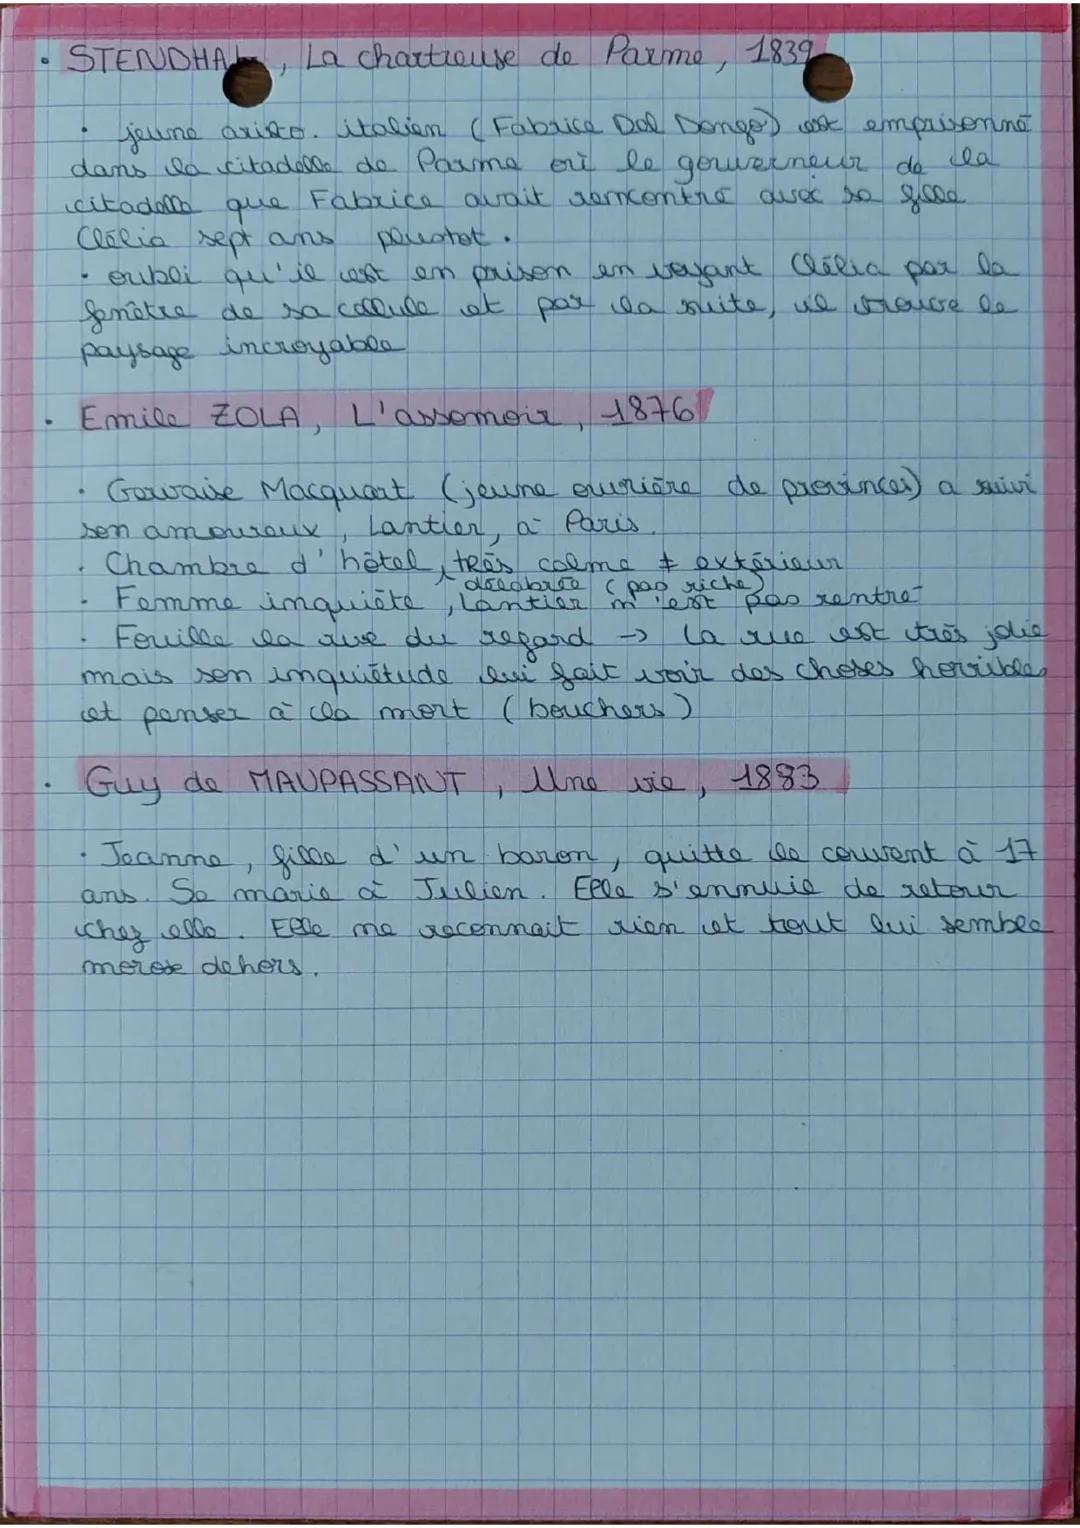 • STENDHAL, La chartreuse de Parme, 1839
• jeune aristo. italien (Fabrice Dal Dongo) est emprisonné
dans la citadelle de Parme où le gouverneur de la
citadelle que Fabrice avait rencontré avec sa fille
Clélia sept ans plustot.
• oubli qu'il est en prison en voyant Clélia par la
fenêtre de sa cellule et par la suite, il trouve le
paysage incroyable
• Emile ZOLA, L'assomoir, 1876
• Gervaise Macquart (jeune ouvrière de provinces) a suivi
son amoureux, Lantier, à Paris.
• Chambre d'hôtel, très calme ≠ extérieur
délabrée (pas riche)
• Femme inquiète, Lantier n'est pas rentré
• Fouille la rue du regard → la rue est très jolie
mais son inquiétude lui fait voir des choses horribles
et penser à la mort (bouchers)
• Guy de MAUPASSANT, Une vie, 1883
• Jeanne, fille d'un baron, quitte le couvent à 17
ans. Se marie à Julien. Elle s'ennuie de retour
chez elle. Elle ne reconnait rien et tout lui semble
morose dehors.